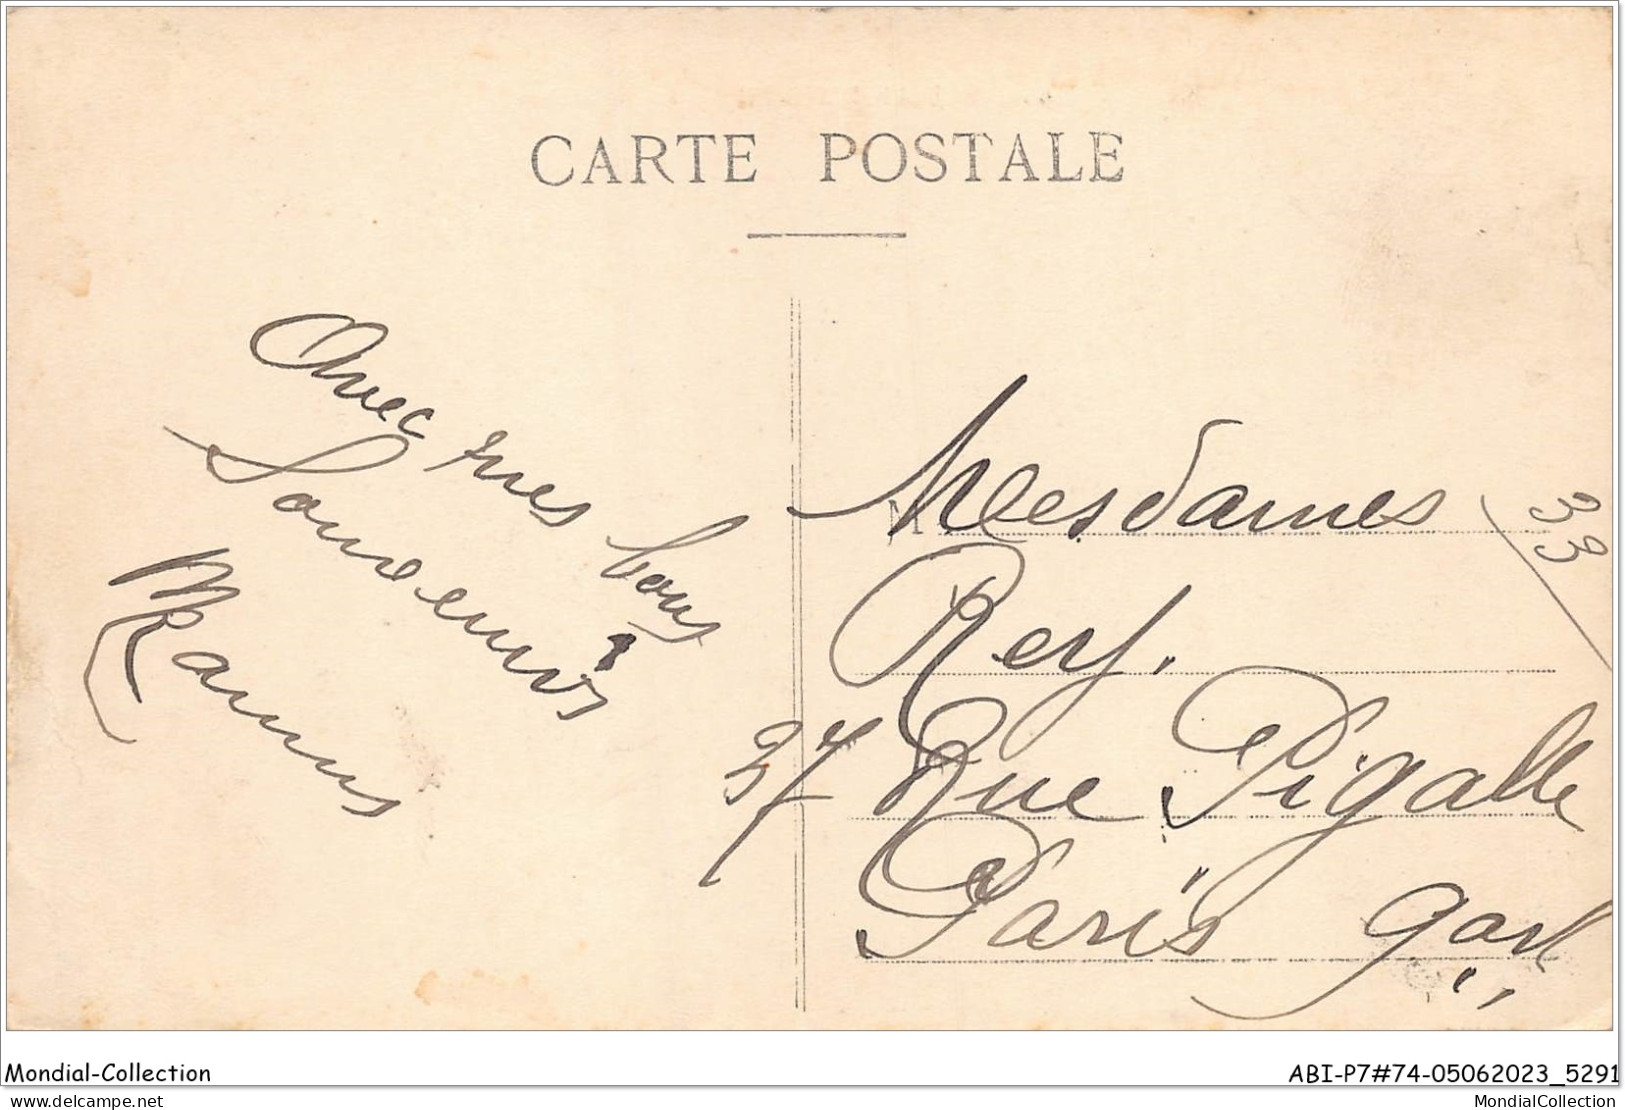 CARTE POSTALE
Avec mes bons
Souvenirs
M
Mesdames
33
Rey.
27 Rue Pigalle
Paris
Mondial-Collection
ABI-P7#74-05062023_5291
delcampe.net
MondialCollection